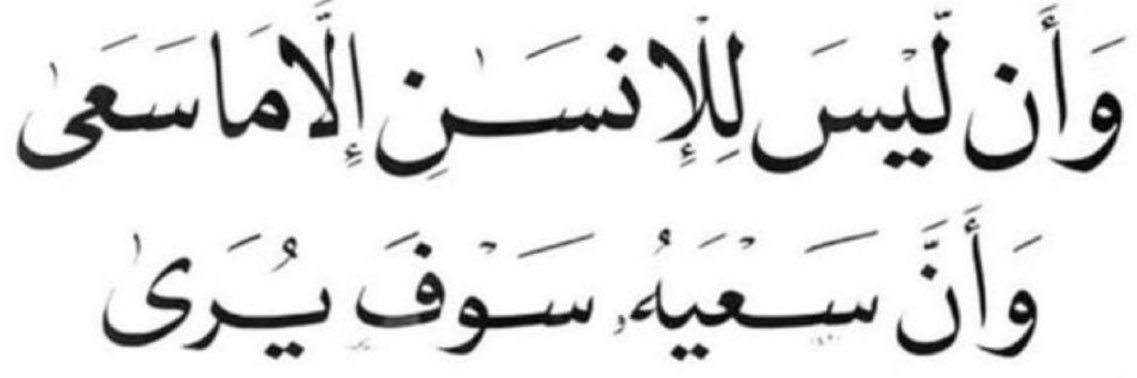 وَأَن لَّيْسَ لِلْإِنسَـٰنِ إِلَّا مَا سَعَىٰ
وَأَنَّ سَعْيَهُۥ سَوْفَ يُرَىٰ